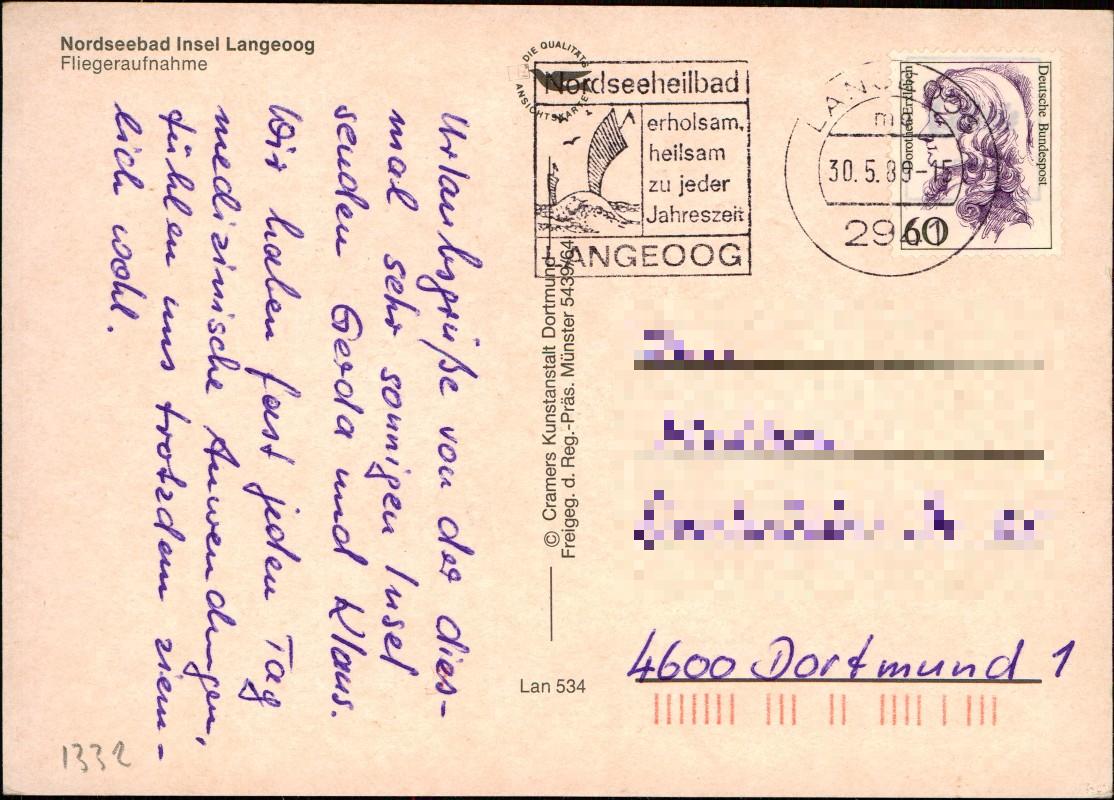 Nordseebad Insel Langeoog
Fliegeraufnahme
Urlaubsgrüße von der dies-
mal sehr sonnigen Insel
senden Gerda und Klaus.
Wir haben fast jeden Tag
medizinische Anwendungen,
fühlen uns trotzdem ziem-
lich wohl.
1332
DIE QUALITÄTS
ANSICHTSKARTE
Nordseeheilbad
erholsam,
heilsam
zu jeder
Jahreszeit
LANGEOOG
30.5.8
Deutsche Bundespost
Dorothea Erxleben
60
© Cramers Kunstanstalt Dortmund
Freigeg. d. Reg.-Präs. Münster 5439/64
Lan 534
4600 Dortmund 1